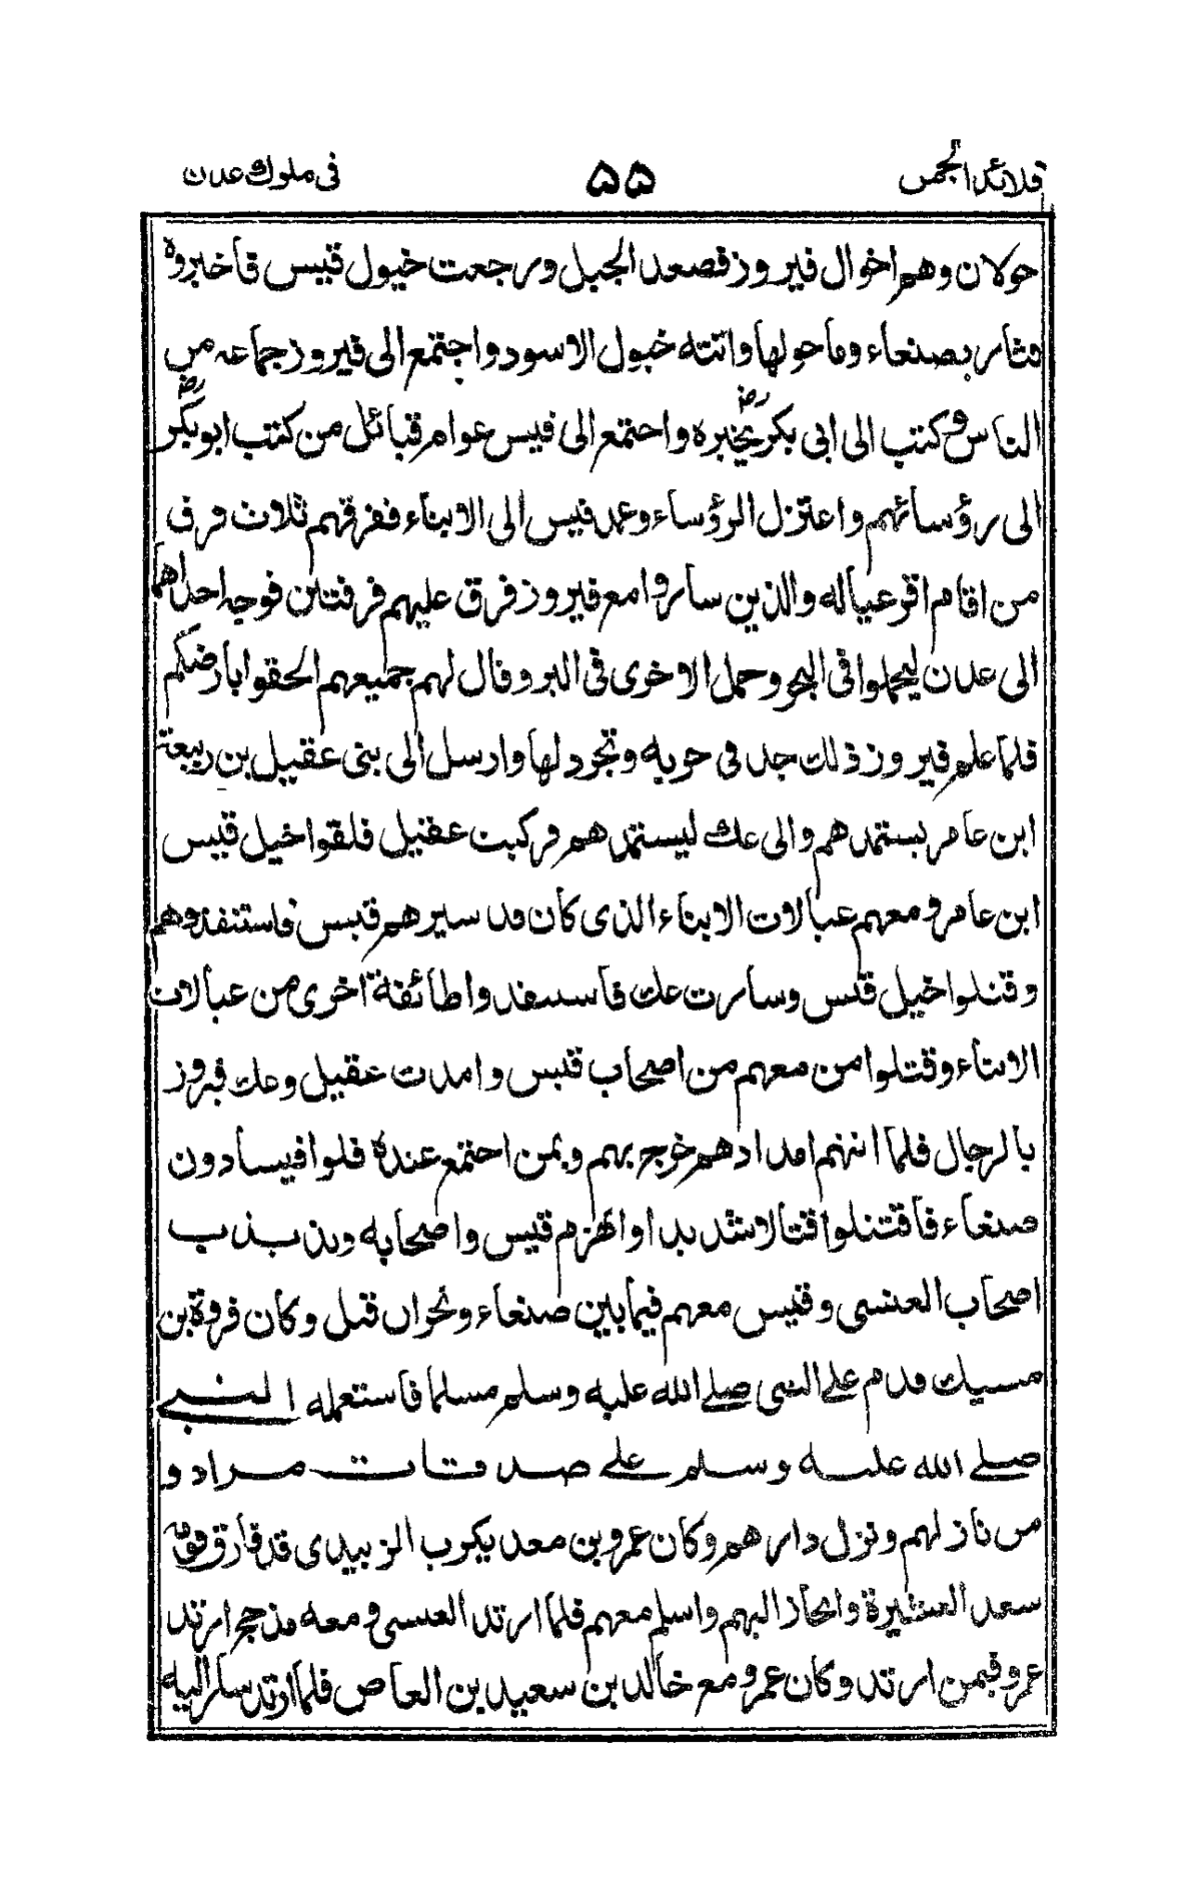 قلائد الجمن
۵۵
فى ملوك عدن
خولان وهم اخوال فيروز فصعد الجبل ورجعت خيول قيس فأخبروه
فثار بصنعاء وما حولها واتته خيول الاسود واجتمع الى فيروز جماعه من
الناس وكتب الى ابى بكر رض يخبره واجتمع الى قيس عوام قبائل من كتب ابو بكر رض
الى رؤسائهم واعتزل الرؤساء وعمد قيس الى الابناء ففرقهم ثلاث فرق
من اقام اقر عياله والذين ساروا مع فيروز فرق عليهم فرقتين فوجه احداهما
الى عدن ليحملوا فى البحر وحمل الاخرى فى البر وقال لهم جميعهم الحقوا بأرضكم
فلما علم فيروز ذلك جد فى حربه وتجرد لها وارسل الى بنى عقيل بن ربيعة
ابن عامر يستمدهم والى عك ليستمدهم فركبت عقيل فلقوا خيل قيس
ابن عامر ومعهم عيالات الابناء الذى كان قد سيرهم قيس فاستنقذوهم
وقتلوا خيل قيس وسارت عك فاستنقذوا طائفة اخرى من عيالات
الابناء وقتلوا من معهم من اصحاب قيس وامدت عقيل وعك فيروز
بالرجال فلما اتتهم امدادهم خرج بهم وبمن اجتمع عنده فلوا قيسا دون
صنعاء فاقتتلوا قتالا شديدا وانهزم قيس واصحابه وتذبذب
اصحاب العنسى وقيس معهم فيما بين صنعاء ونجران قتل وكان فروة بن
مسيك قدم على النبى صلى الله عليه وسلم مسلما فاستعمله النبى
صلى الله عليه وسلم على صدقات مراد و
من نازلهم ونزل دارهم وكان عمرو بن معد يكرب الزبيدى قد فارق قومه
سعد العشيرة وانحاز اليهم واسلم معهم فلما ارتد العنسى ومعه مذحج ارتد
عمرو فيمن ارتد وكان عمرو مع خالد بن سعيد بن العاص فلما ارتد سار اليه